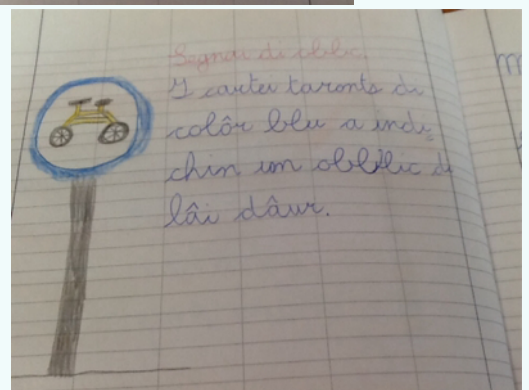 Segnâi di oblic.
I cartei taronts di
colôr blu a indi
chin um oblic di
lâi daûr.
m